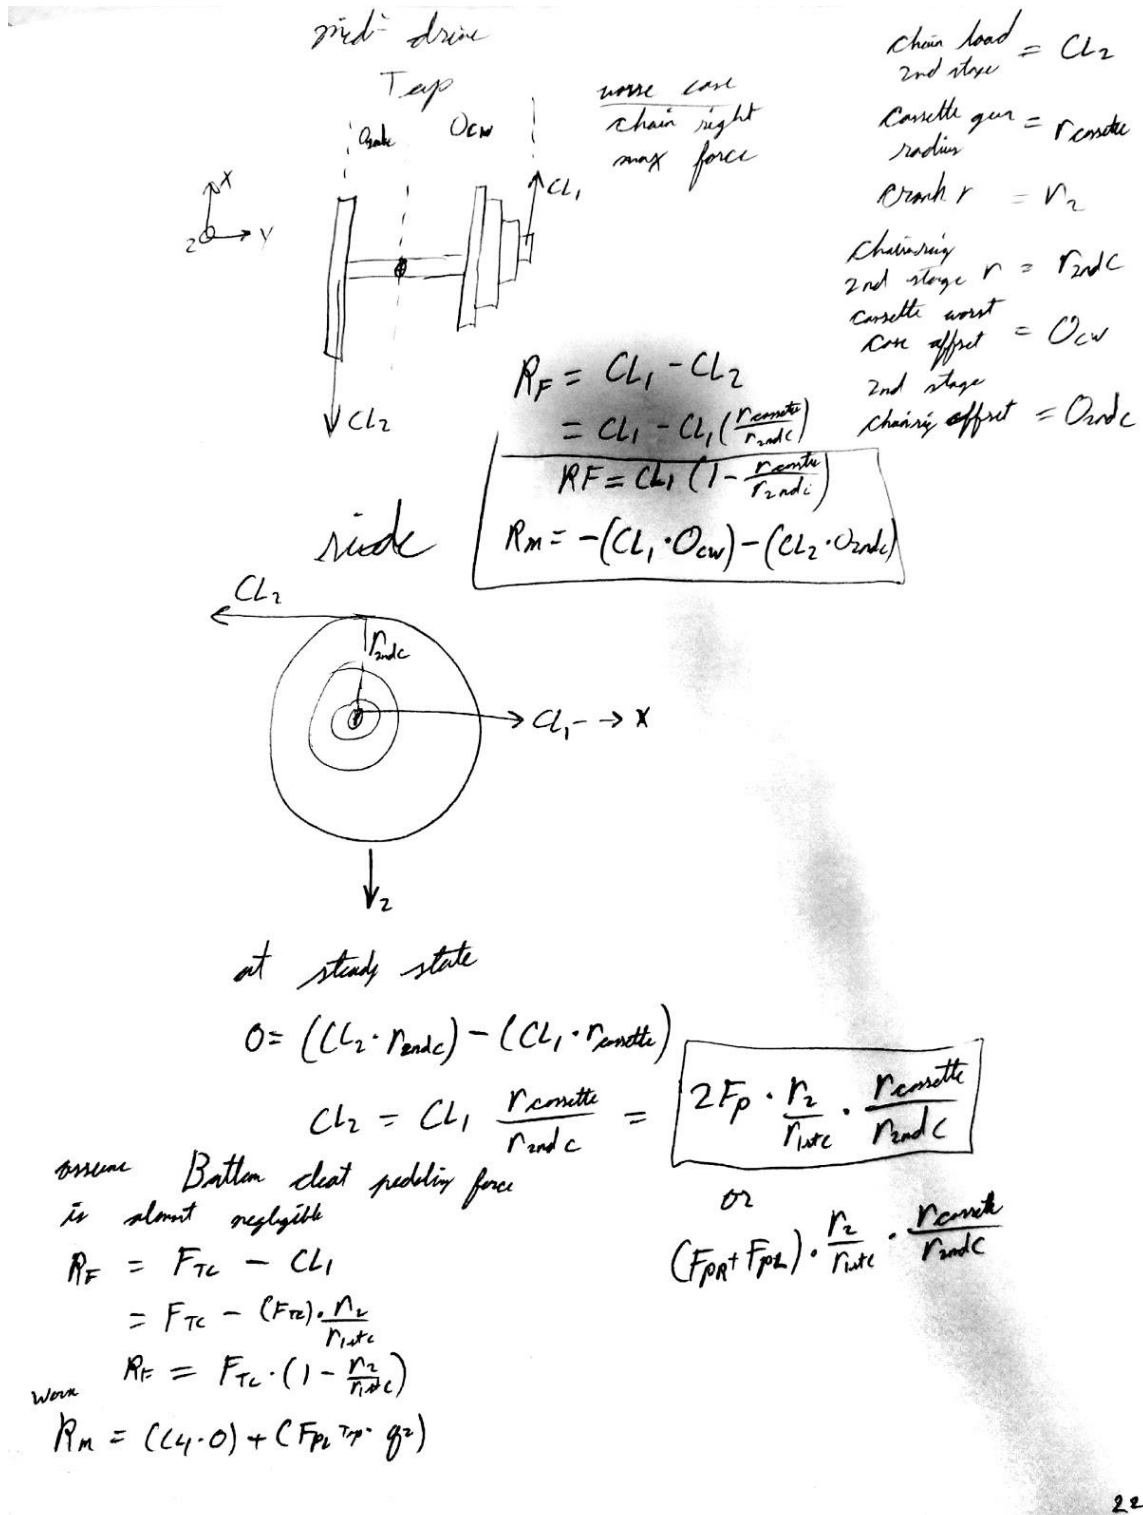 mid-drive
Top
worse case
chain right
max force
O_cw
X
Y
z
CL₁
CL₂
chain load
2nd stage = CL₂
cassette gear
radius = r_cassette
crank r = r₂
chainring
2nd stage r = r_2ndc
cassette worst
case offset = O_cw
2nd stage
chainring offset = O_2ndc
R_F = CL₁ - CL₂
= CL₁ - CL₁ (r_cassette / r_2ndc)
RF = CL₁ (1 - r_cassette / r_2ndc)
R_m = -(CL₁ · O_cw) - (CL₂ · O_2ndc)
side
CL₂
r_2ndc
CL₁ → X
z
at steady state
0 = (CL₂ · r_2ndc) - (CL₁ · r_cassette)
CL₂ = CL₁ r_cassette / r_2ndc = 2F_p · r₂ / r_1stc · r_cassette / r_2ndc
or
(F_pR + F_pL) · r₂ / r_1stc · r_cassette / r_2ndc
assume Bottom cleat pedaling force
is almost negligible
R_F = F_TC - CL₁
= F_TC - (F_TC) · r₂ / r_1stc
R_F = F_TC · (1 - r₂ / r_1stc)
R_m =
22